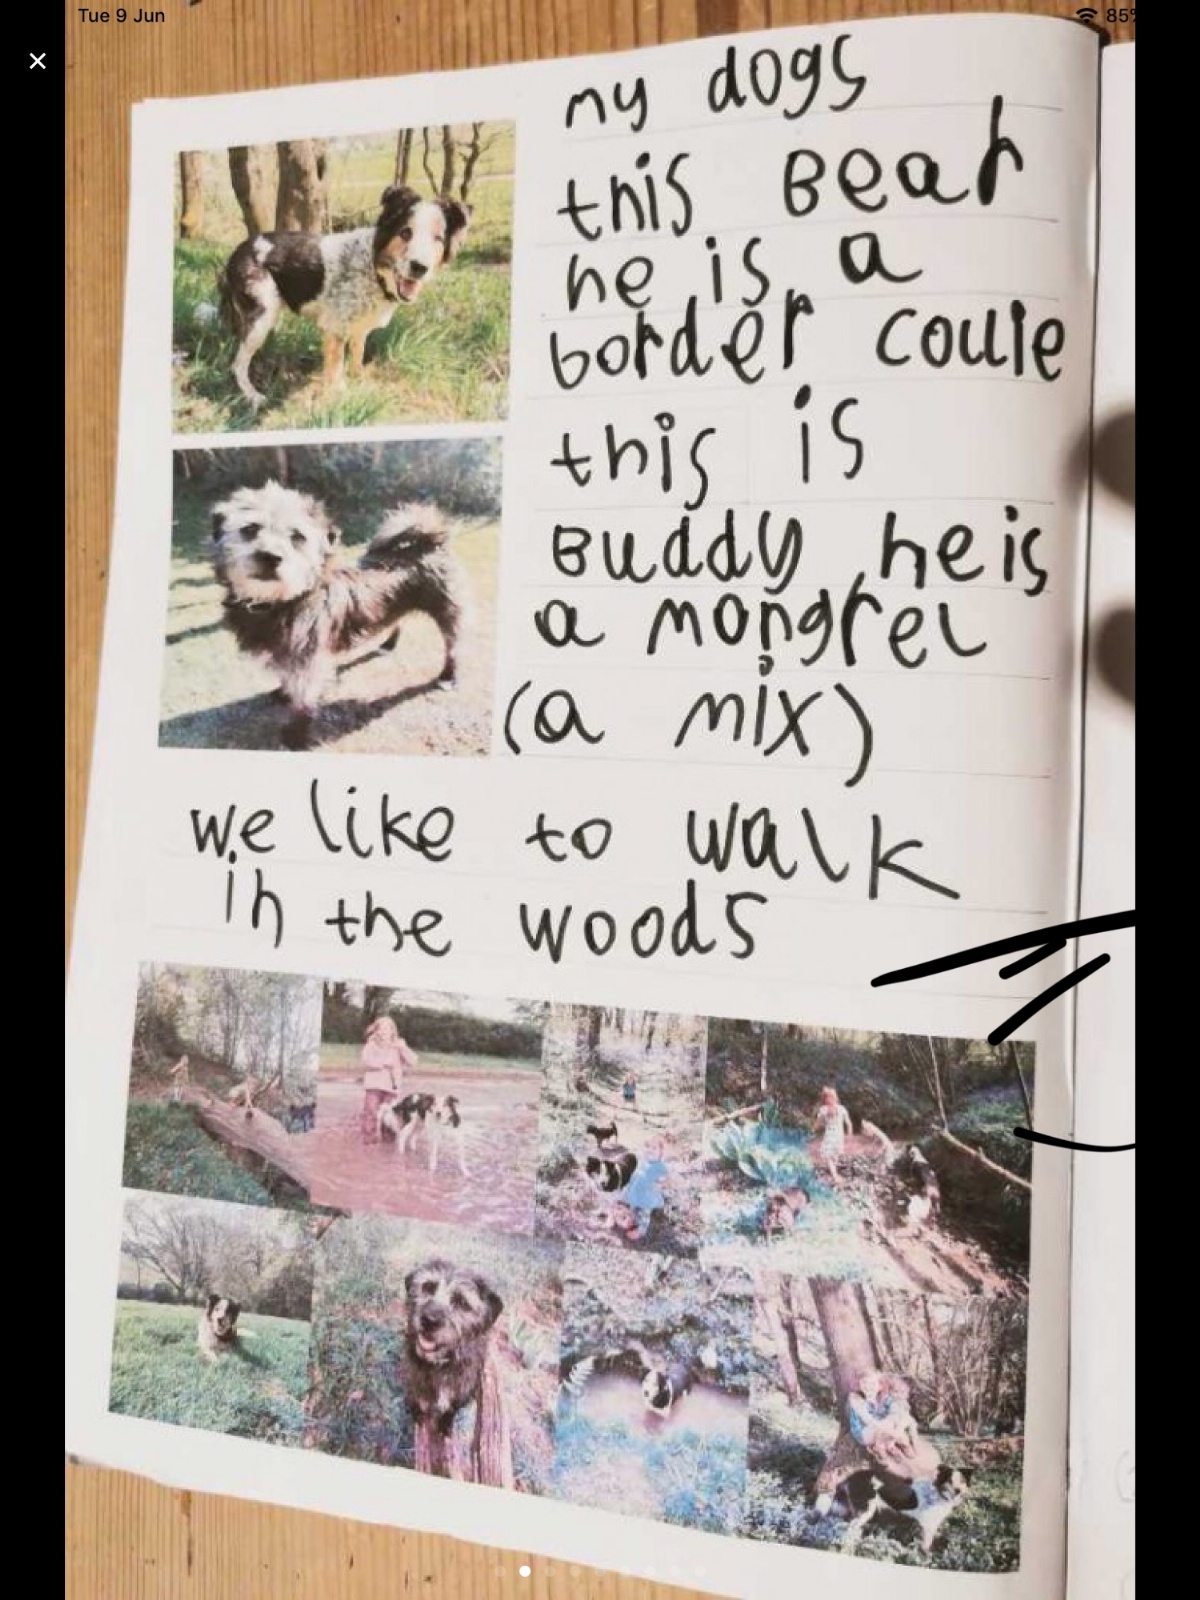 Tue 9 Jun
85%
my dogs
this Bear
he is a
border coulie
this is
Buddy he is
a mongrel
(a mix)
we like to walk
in the woods